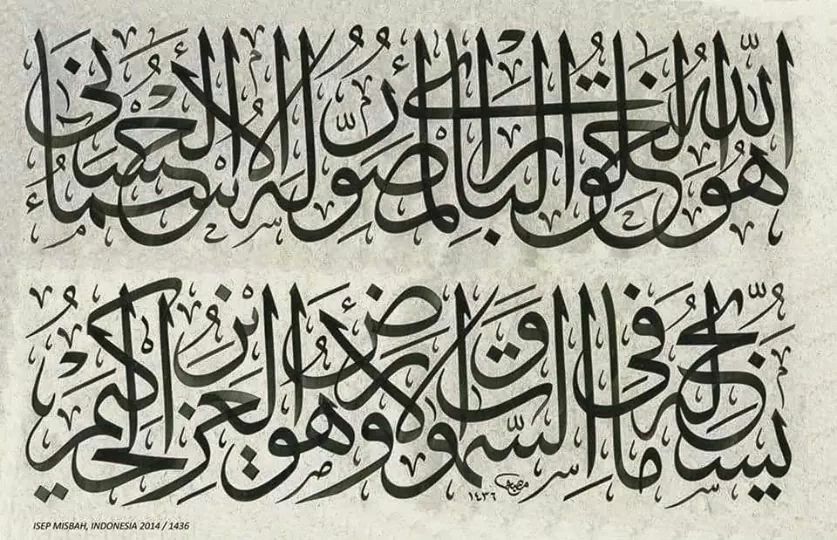 هو الله الخالق البارئ المصور له الأسماء الحسنى
يسبح له ما في السموات والأرض وهو العزيز الحكيم
١٤٣٦
ISEP MISBAH, INDONESIA 2014 / 1436